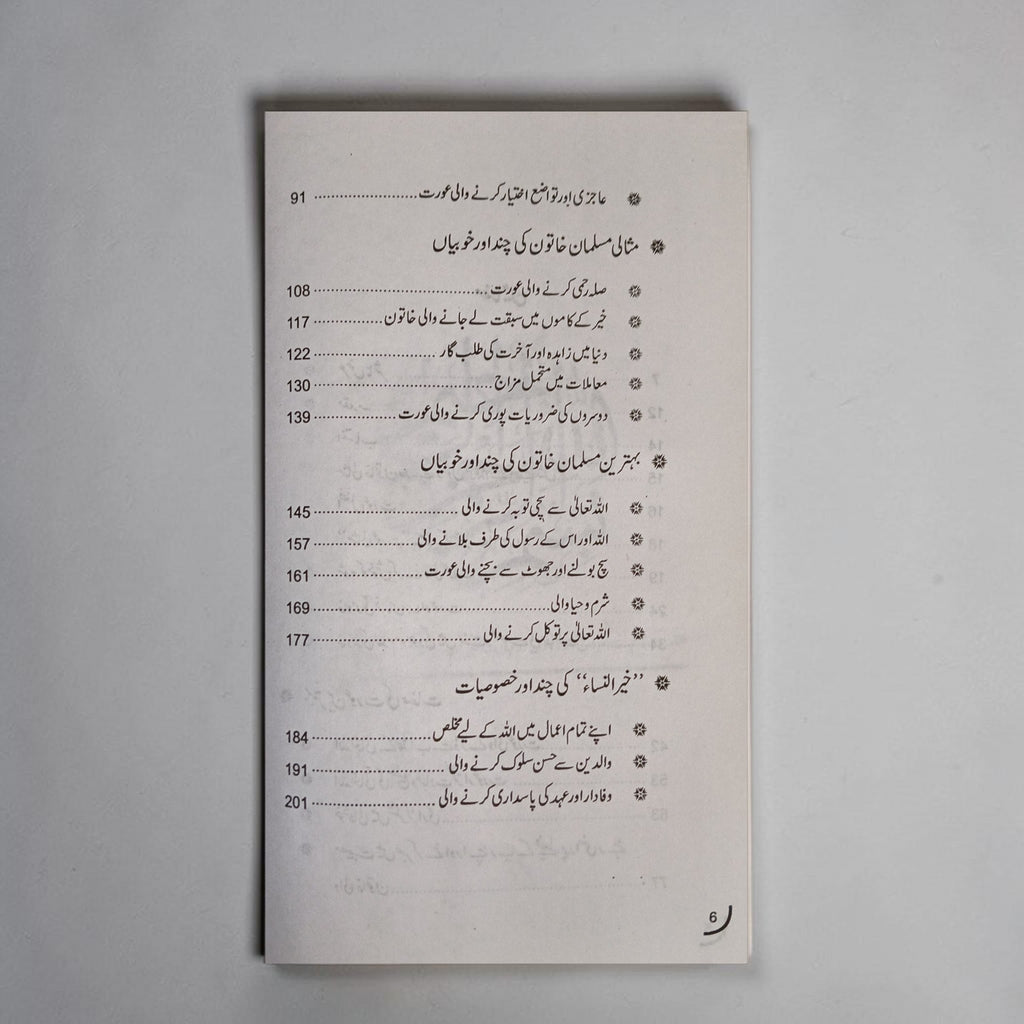 عاجزی اور تواضع اختیار کرنے والی عورت ........ 91
مثالی مسلمان خاتون کی چند اور خوبیاں
صلہ رحمی کرنے والی عورت ........ 108
خیر کے کاموں میں سبقت لے جانے والی خاتون ........ 117
دنیا میں زاہدہ اور آخرت کی طلب گار ........ 122
معاملات میں متحمل مزاج ........ 130
دوسروں کی ضروریات پوری کرنے والی عورت ........ 139
بہترین مسلمان خاتون کی چند اور خوبیاں
اللہ تعالیٰ سے سچی توبہ کرنے والی ........ 145
اللہ اور اس کے رسول کی طرف بلانے والی ........ 157
سچ بولنے اور جھوٹ سے بچنے والی عورت ........ 161
شرم و حیا والی ........ 169
اللہ تعالیٰ پر توکل کرنے والی ........ 177
’’خیر النساء‘‘ کی چند اور خصوصیات
اپنے تمام اعمال میں اللہ کے لیے مخلص ........ 184
والدین سے حسن سلوک کرنے والی ........ 191
وفادار اور عہد کی پاسداری کرنے والی ........ 201
6